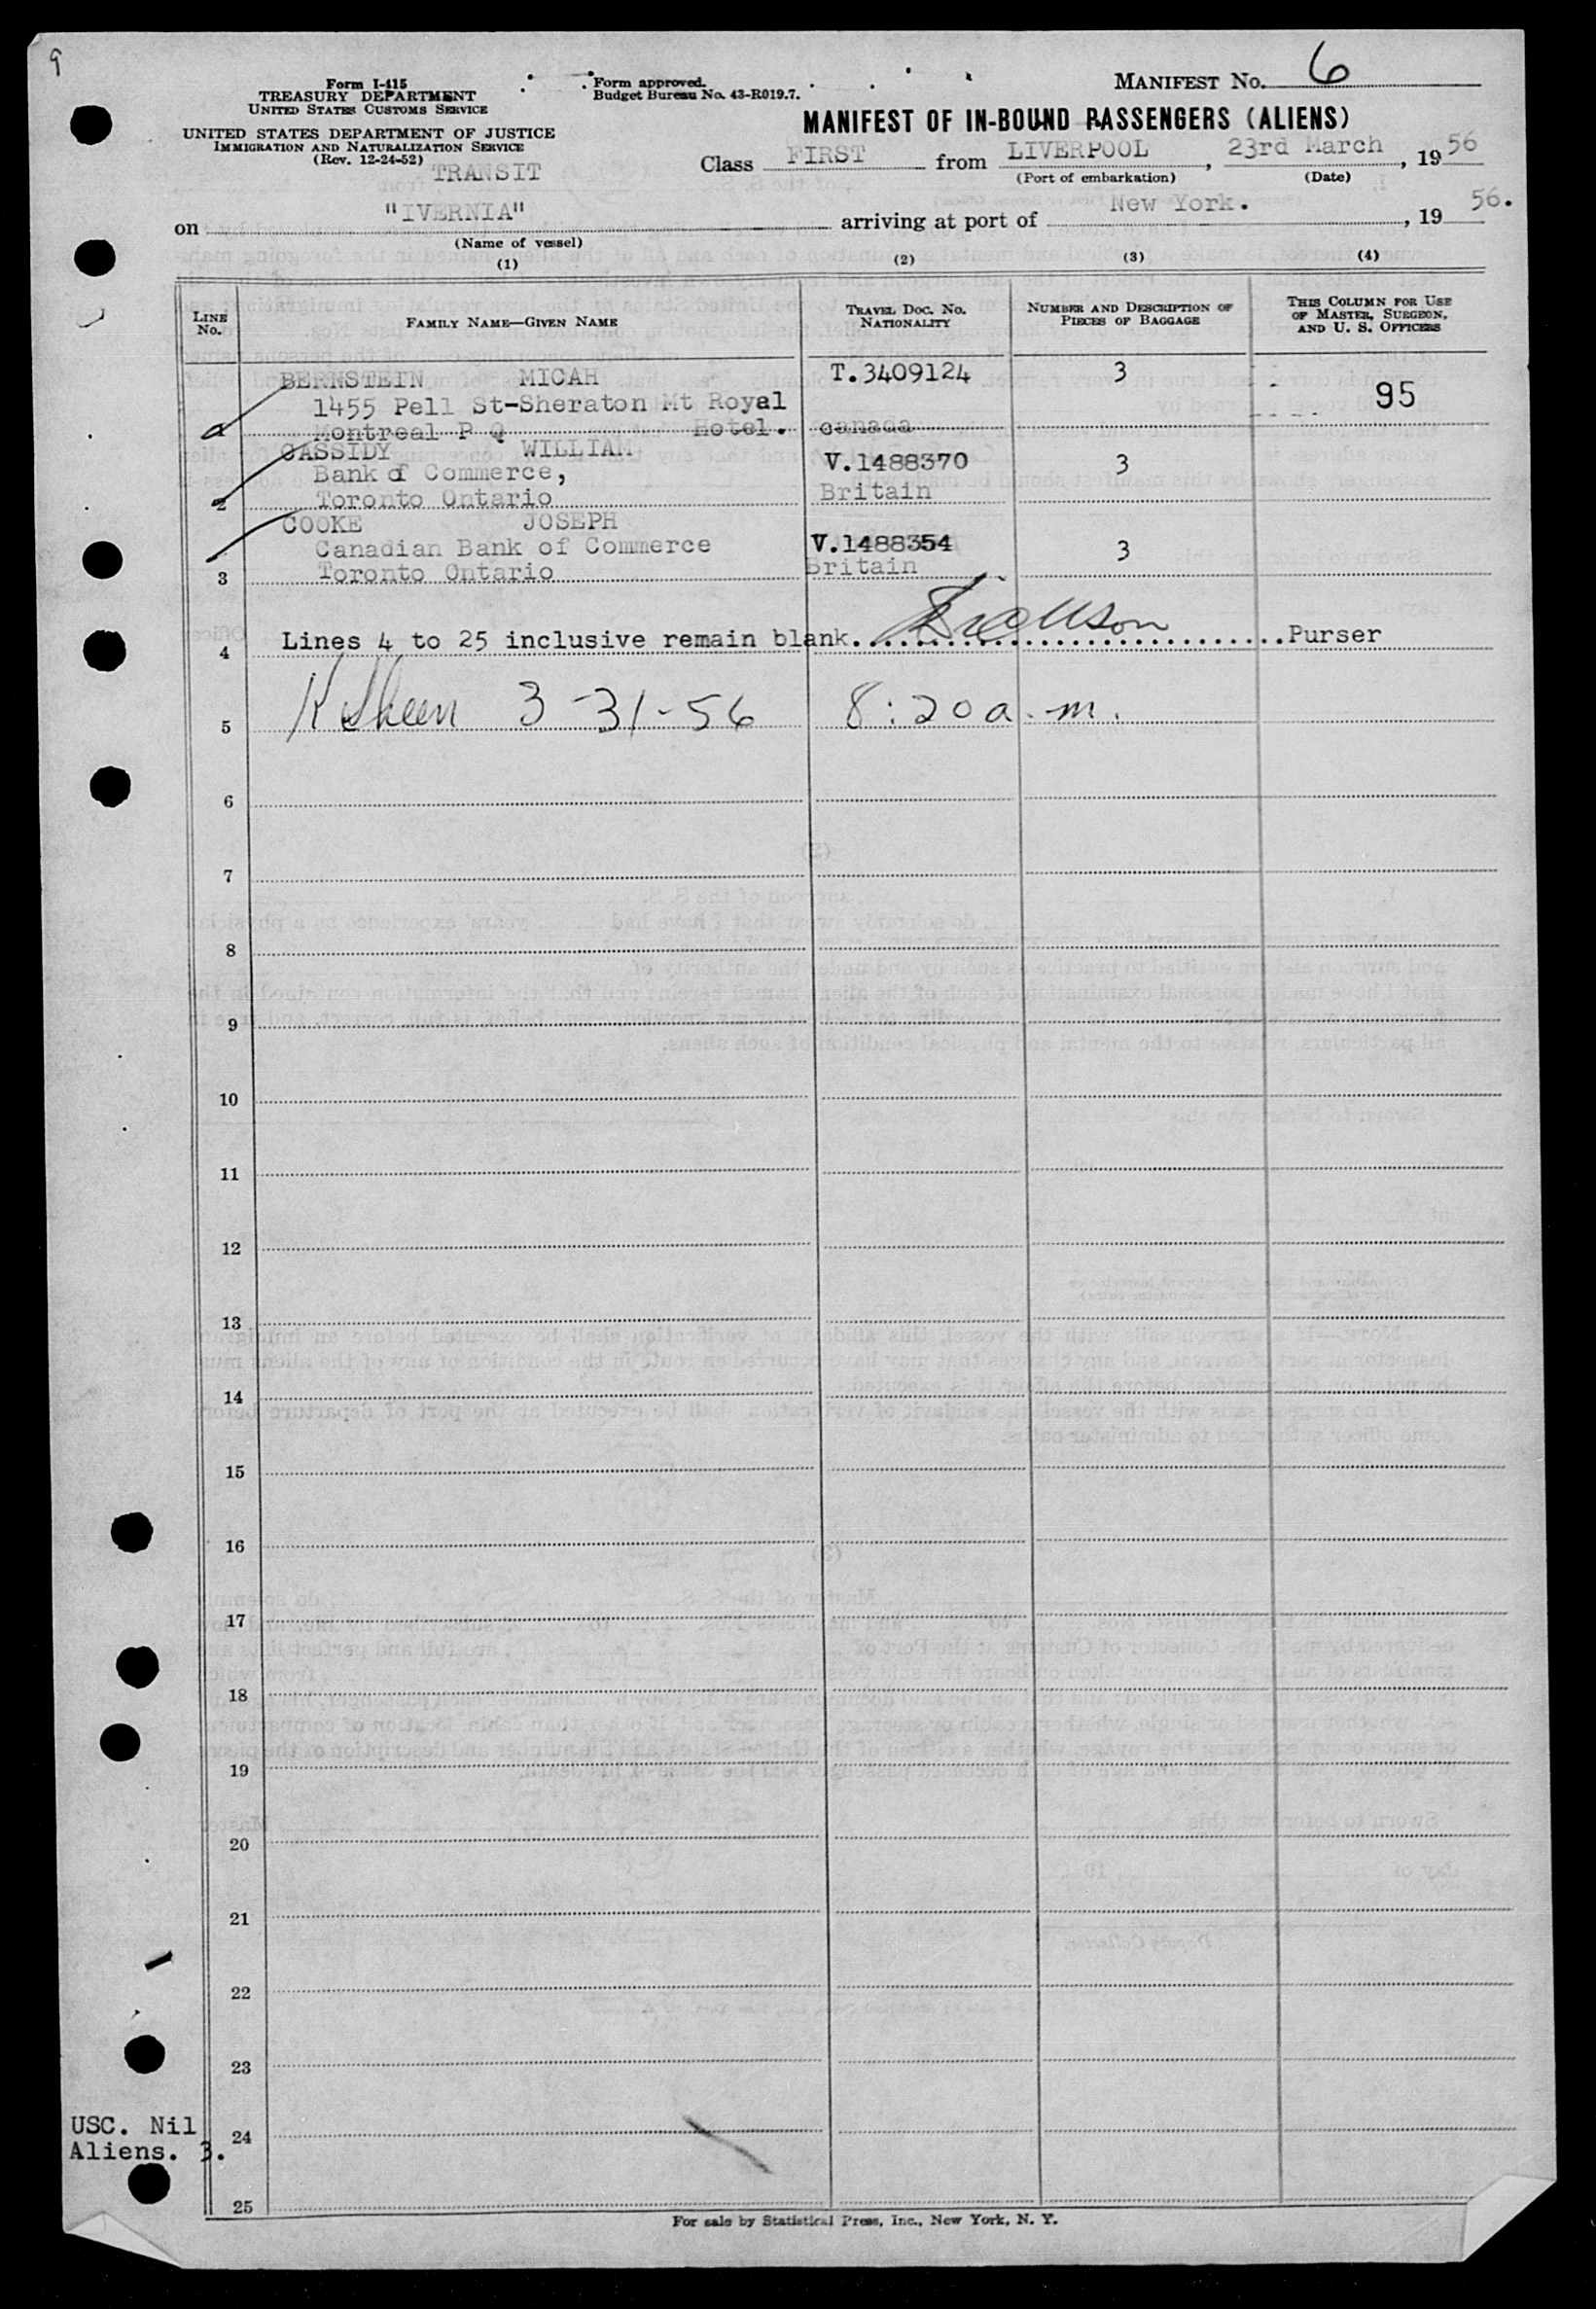 9
Form I-415
TREASURY DEPARTMENT
UNITED STATES CUSTOMS SERVICE
UNITED STATES DEPARTMENT OF JUSTICE
IMMIGRATION AND NATURALIZATION SERVICE
(Rev. 12-24-52)
TRANSIT
Form approved.
Budget Bureau No. 43-R019.7.
MANIFEST NO. 6
MANIFEST OF IN-BOUND PASSENGERS (ALIENS)
Class FIRST from LIVERPOOL, 23rd March, 1956
(Port of embarkation) (Date)
on "IVERNIA" arriving at port of New York. , 19 56.
(Name of vessel)
(1) (2) (3) (4)
LINE NO. FAMILY NAME—GIVEN NAME TRAVEL DOC. NO. NATIONALITY NUMBER AND DESCRIPTION OF PIECES OF BAGGAGE THIS COLUMN FOR USE OF MASTER, SURGEON, AND U. S. OFFICERS
BERNSTEIN MICAH T.3409124 3
1455 Pell St-Sheraton Mt Royal 95
Montreal P Q Hotel. canada
CASSIDY WILLIAM V.1488370 3
Bank of Commerce,
2 Toronto Ontario Britain
COOKE JOSEPH
Canadian Bank of Commerce V.1488354 3
3 Toronto Ontario Britain
4 Lines 4 to 25 inclusive remain blank. Purser
5 3-31-56 8:20 a.m.
6
7
8
9
10
11
12
13
14
15
16
17
18
19
20
21
22
23
USC. Nil
24
Aliens. 3.
25
For sale by Statistical Press, Inc., New York, N. Y.